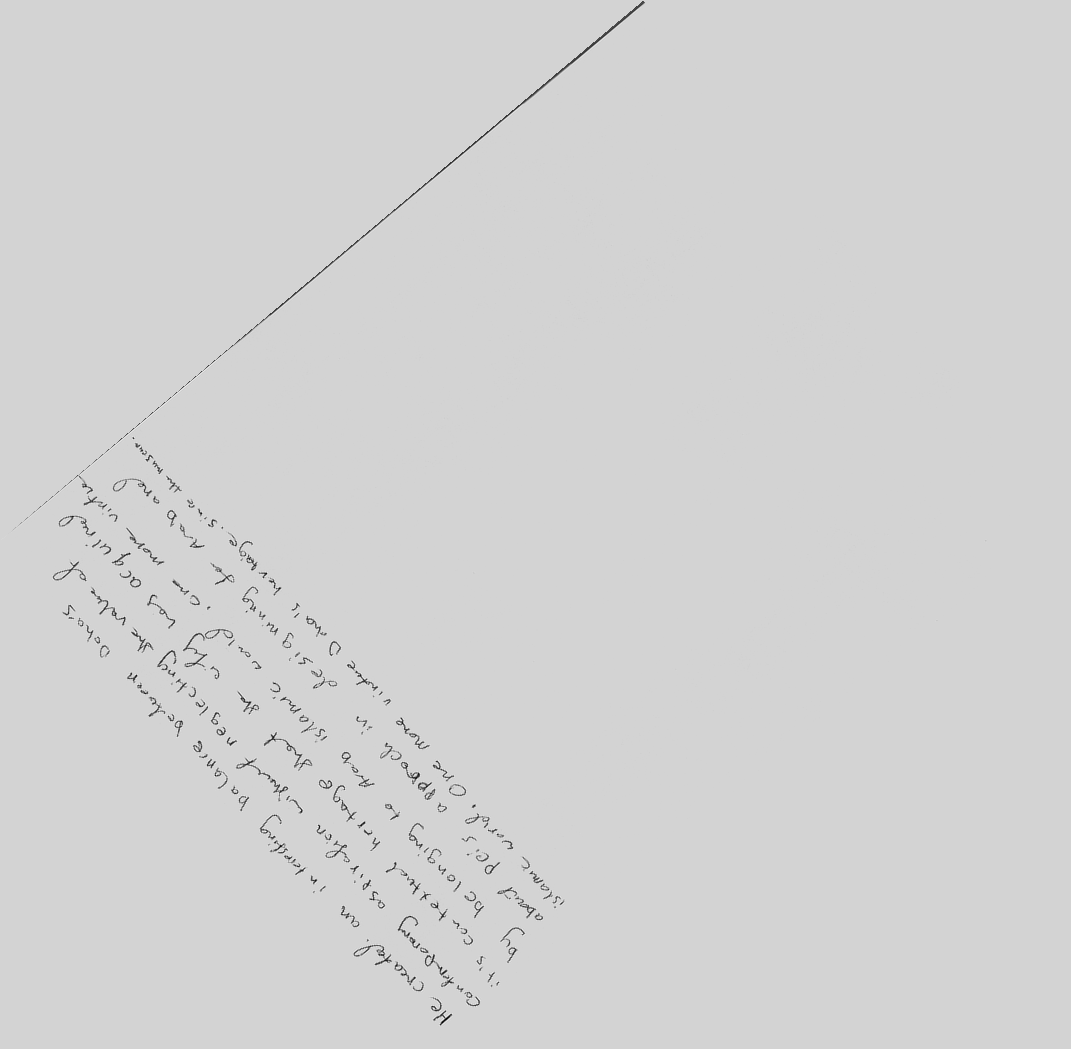 He created. an interesting balance between Doha's
Contemporary aspiration without neglecting the value of
it's contextual hertage that the city has acquired
by belonging to Arab islamic world. One more virtue
about pei's appoach in designining for Arab and
islamic world. One more virtue Doha's hertage. since the museum.